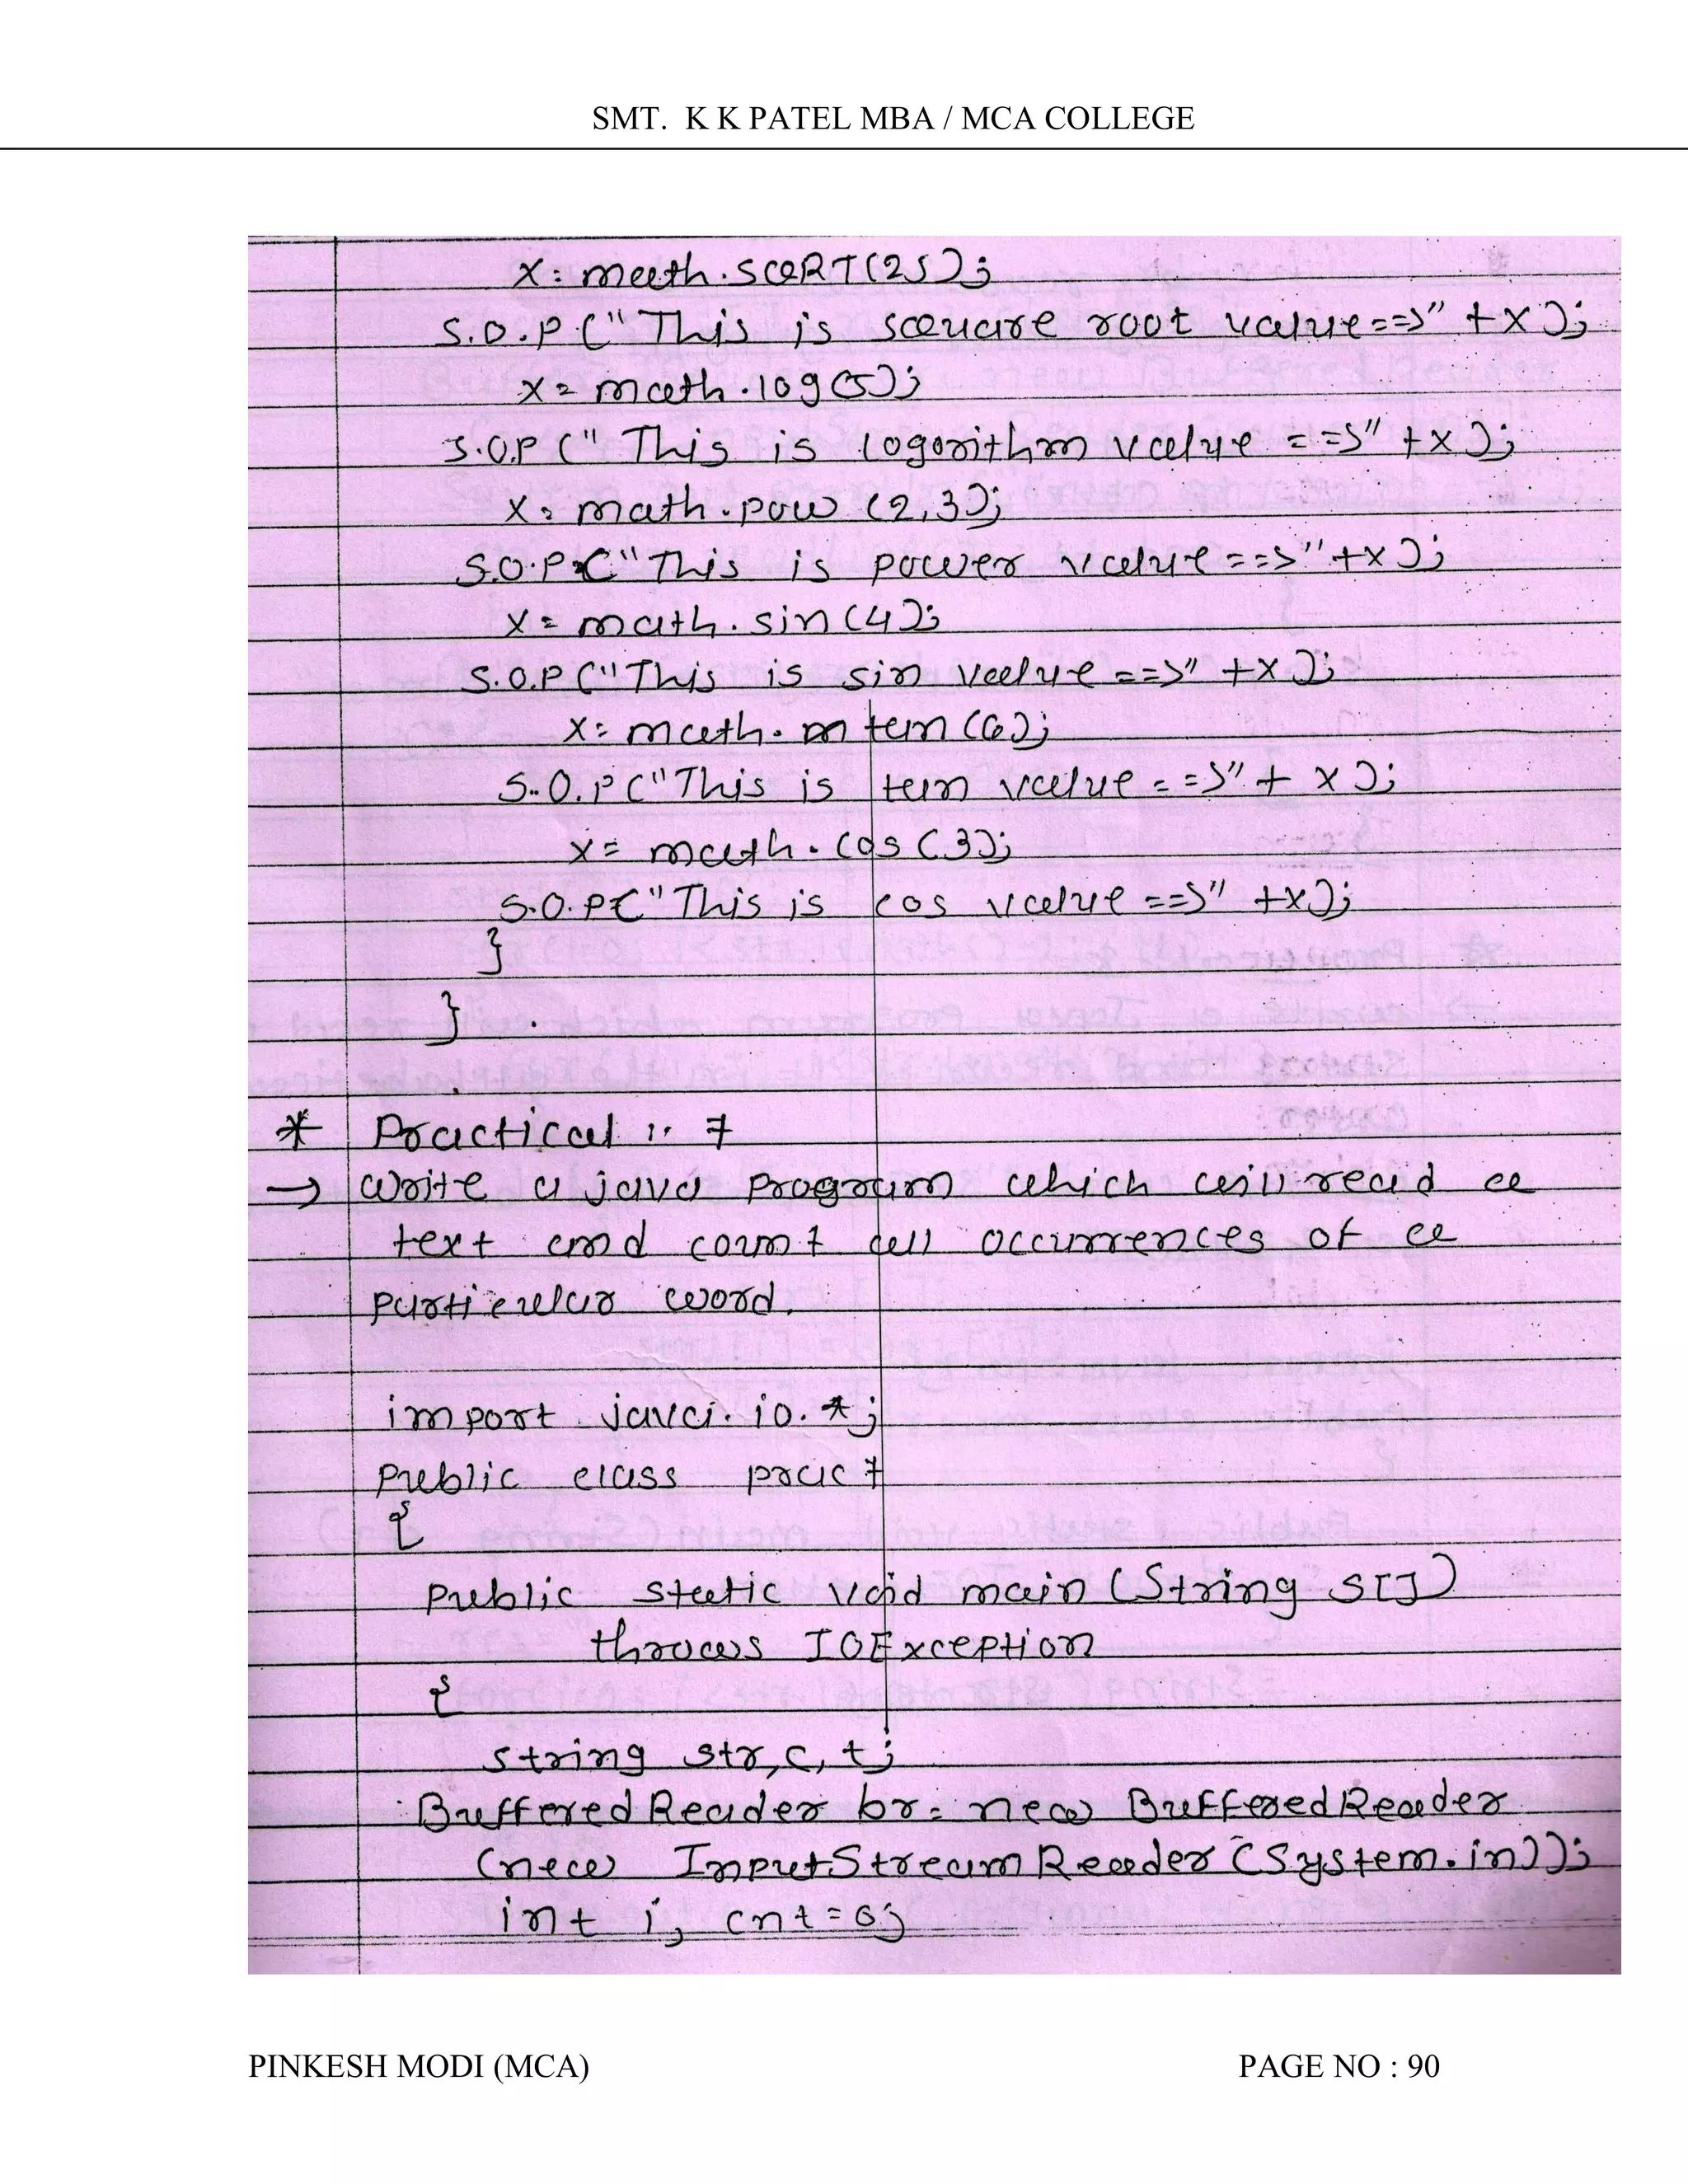 SMT. K K PATEL MBA / MCA COLLEGE
x = math.SQRT(25);
S.O.P("This is square root value==>" +x);
x = math.log(5);
S.O.P ("This is logorithm value ==>" +x);
x = math.pow (2,3);
S.O.P("This is power value ==>"+x);
x = math.sin(4);
S.O.P("This is sin value ==>" +x);
x = math. tan (6);
S.O.P("This is tan value ==>" + x);
x = math.cos(3);
S.O.P("This is cos value ==>" +x);
}
}
* Practical :: 7
→ write a java program which will read a
text and count all occurrences of a
particular word.
import java.io.*;
public class prac7
{
public static void main (String s[])
throws IOException
{
string str,c,t;
BufferedReader br= new BufferedReader
(new InputStreamReader(System.in));
int i, cnt=0;
PINKESH MODI (MCA) PAGE NO : 90